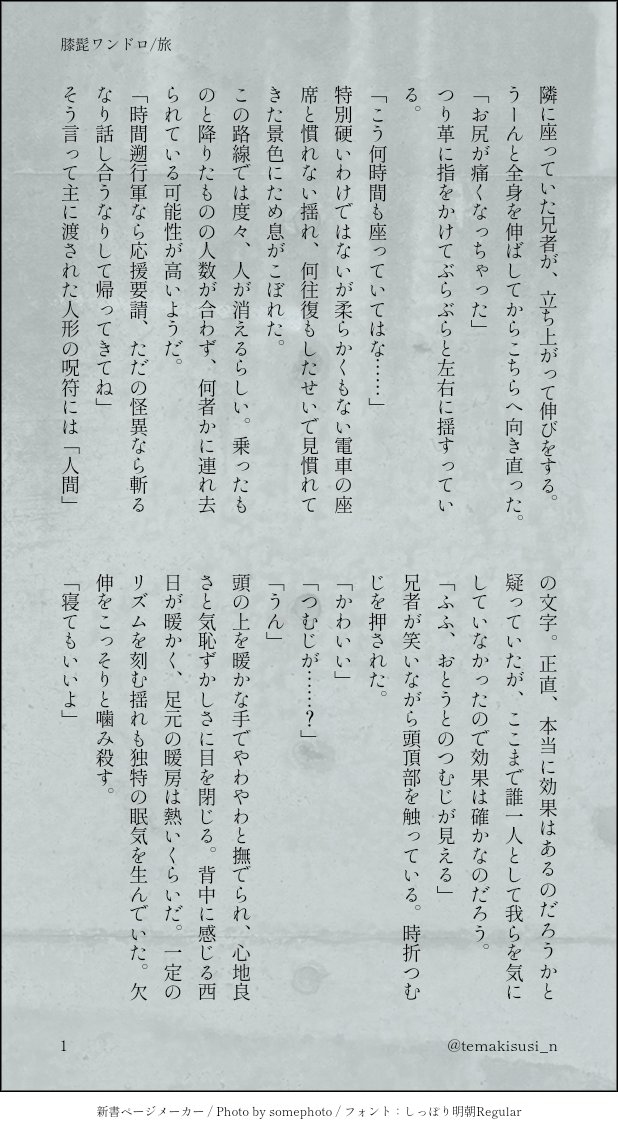 膝髭ワンドロ/旅
隣に座っていた兄者が、立ち上がって伸びをする。
うーんと全身を伸ばしてからこちらへ向き直った。
「お尻が痛くなっちゃった」
つり革に指をかけてぶらぶらと左右に揺すってい
る。
「こう何時間も座っていてはな……」
特別硬いわけではないが柔らかくもない電車の座
席と慣れない揺れ、何往復もしたせいで見慣れて
きた景色にため息がこぼれた。
この路線では度々、人が消えるらしい。乗ったも
のと降りたものの人数が合わず、何者かに連れ去
られている可能性が高いようだ。
「時間遡行軍なら応援要請、ただの怪異なら斬る
なり話し合うなりして帰ってきてね」
そう言って主に渡された人形の呪符には「人間」
の文字。正直、本当に効果はあるのだろうかと
疑っていたが、ここまで誰一人として我らを気に
していなかったので効果は確かなのだろう。
「ふふ、おとうとのつむじが見える」
兄者が笑いながら頭頂部を触っている。時折つむ
じを押された。
「かわいい」
「つむじが……？」
「うん」
頭の上を暖かな手でやわやわと撫でられ、心地良
さと気恥ずかしさに目を閉じる。背中に感じる西
日が暖かく、足元の暖房は熱いくらいだ。一定の
リズムを刻む揺れも独特の眠気を生んでいた。欠
伸をこっそりと噛み殺す。
「寝てもいいよ」
1
@temakisusi_n
新書ページメーカー / Photo by somephoto / フォント：しっぽり明朝Regular